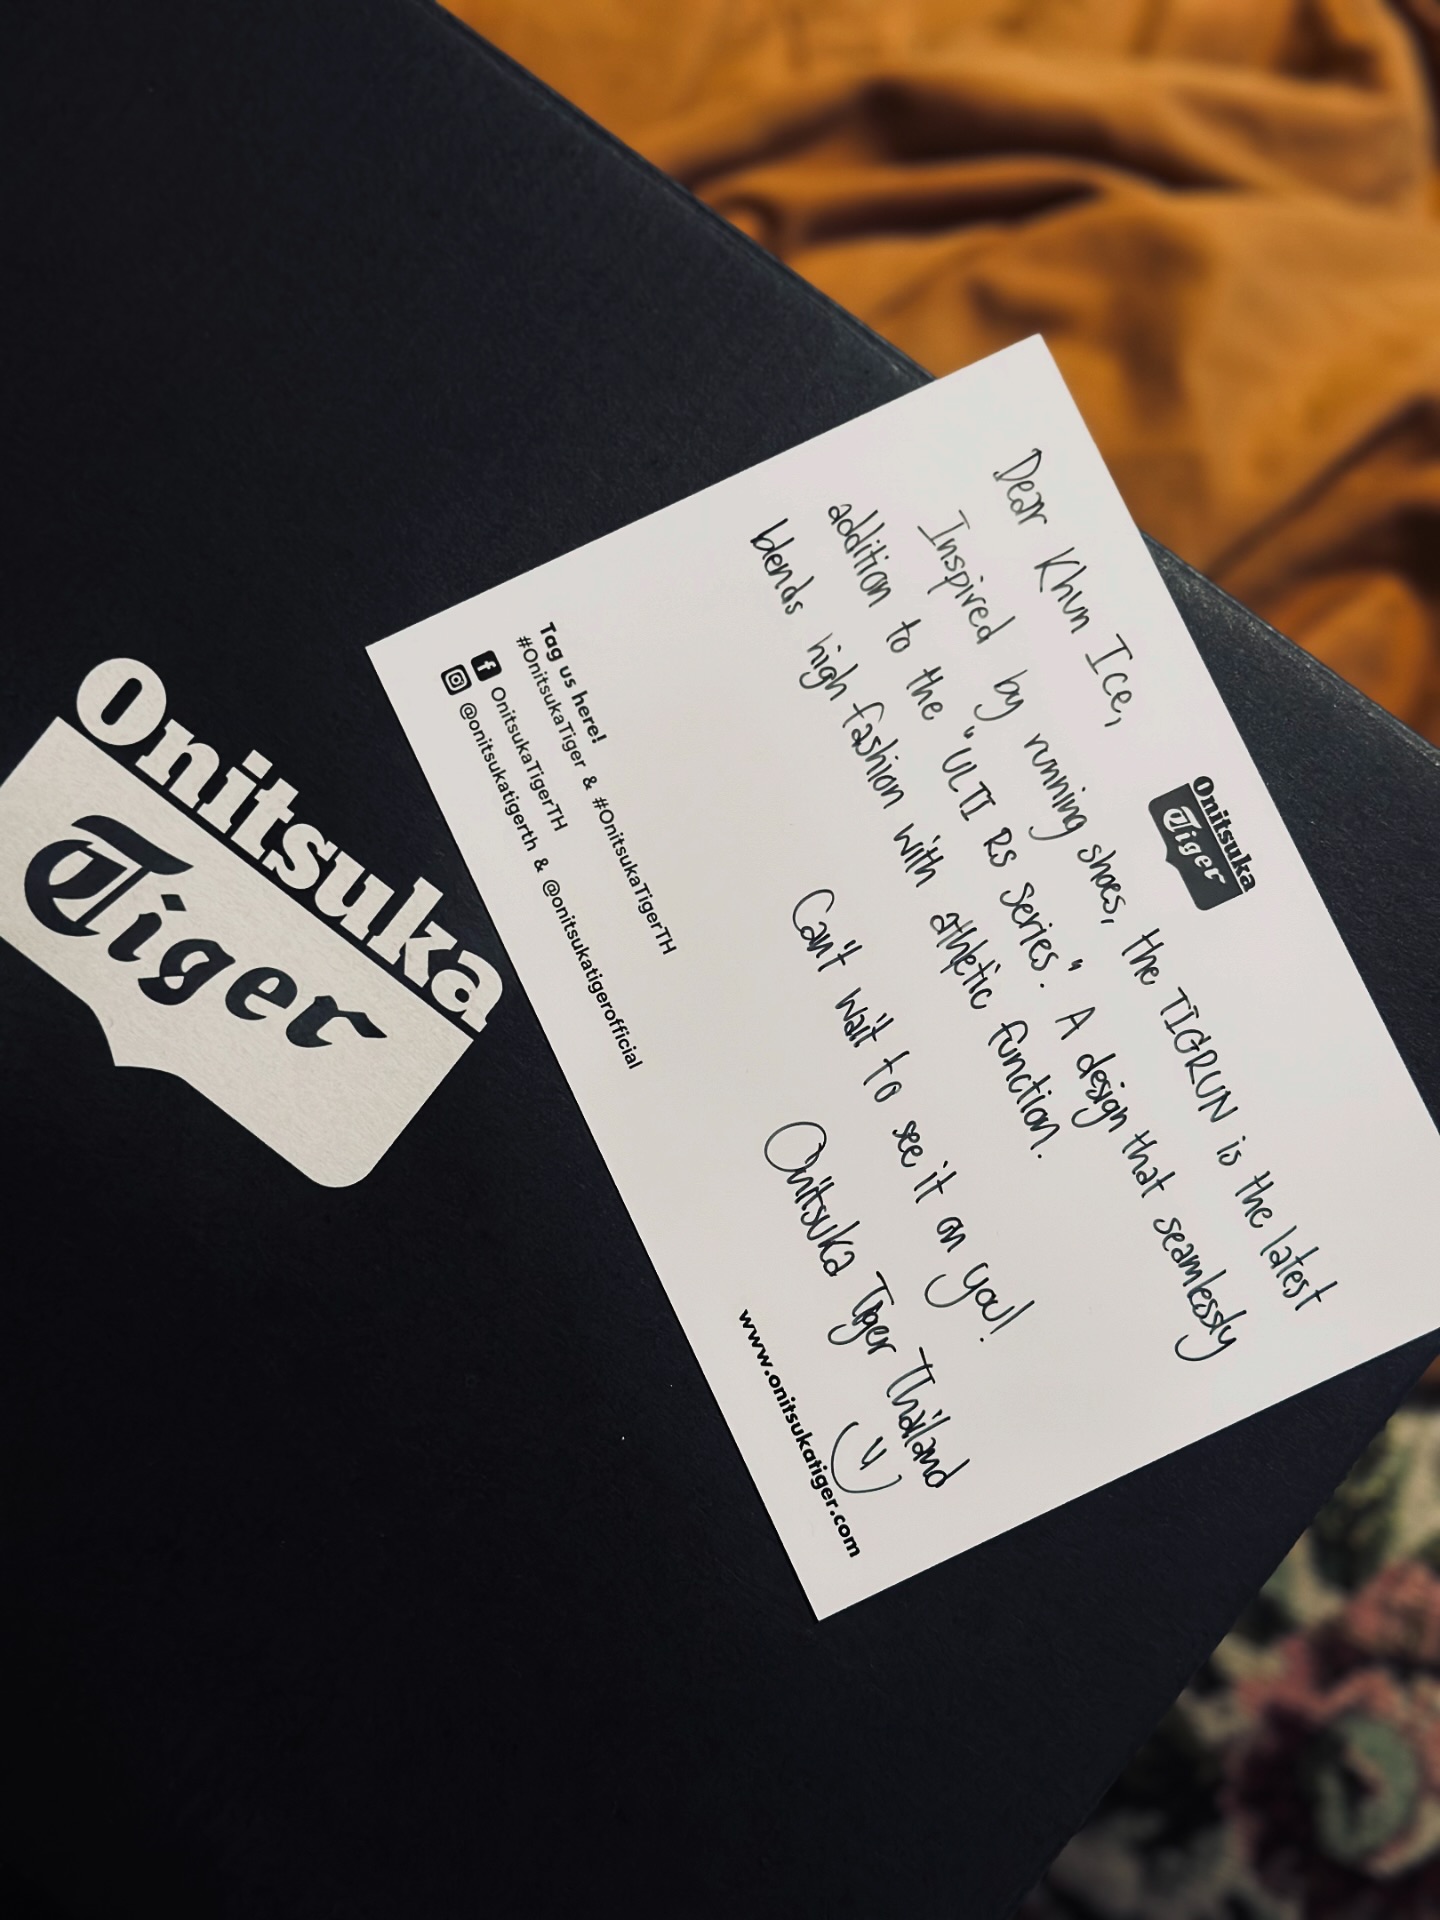 Onitsuka
Tiger
Onitsuka
Tiger
Dear Khun Ice,
Inspired by running shoes, the TIGRUN is the latest
addition to the "ULTI RS series." A design that seamlessly
blends high fashion with athletic function.
Can't wait to see it on you!
Onitsuka Tiger Thailand
Tag us here!
#OnitsukaTiger & #OnitsukaTigerTH
OnitsukaTigerTH
@onitsukatigerth & @onitsukatigerofficial
www.onitsukatiger.com